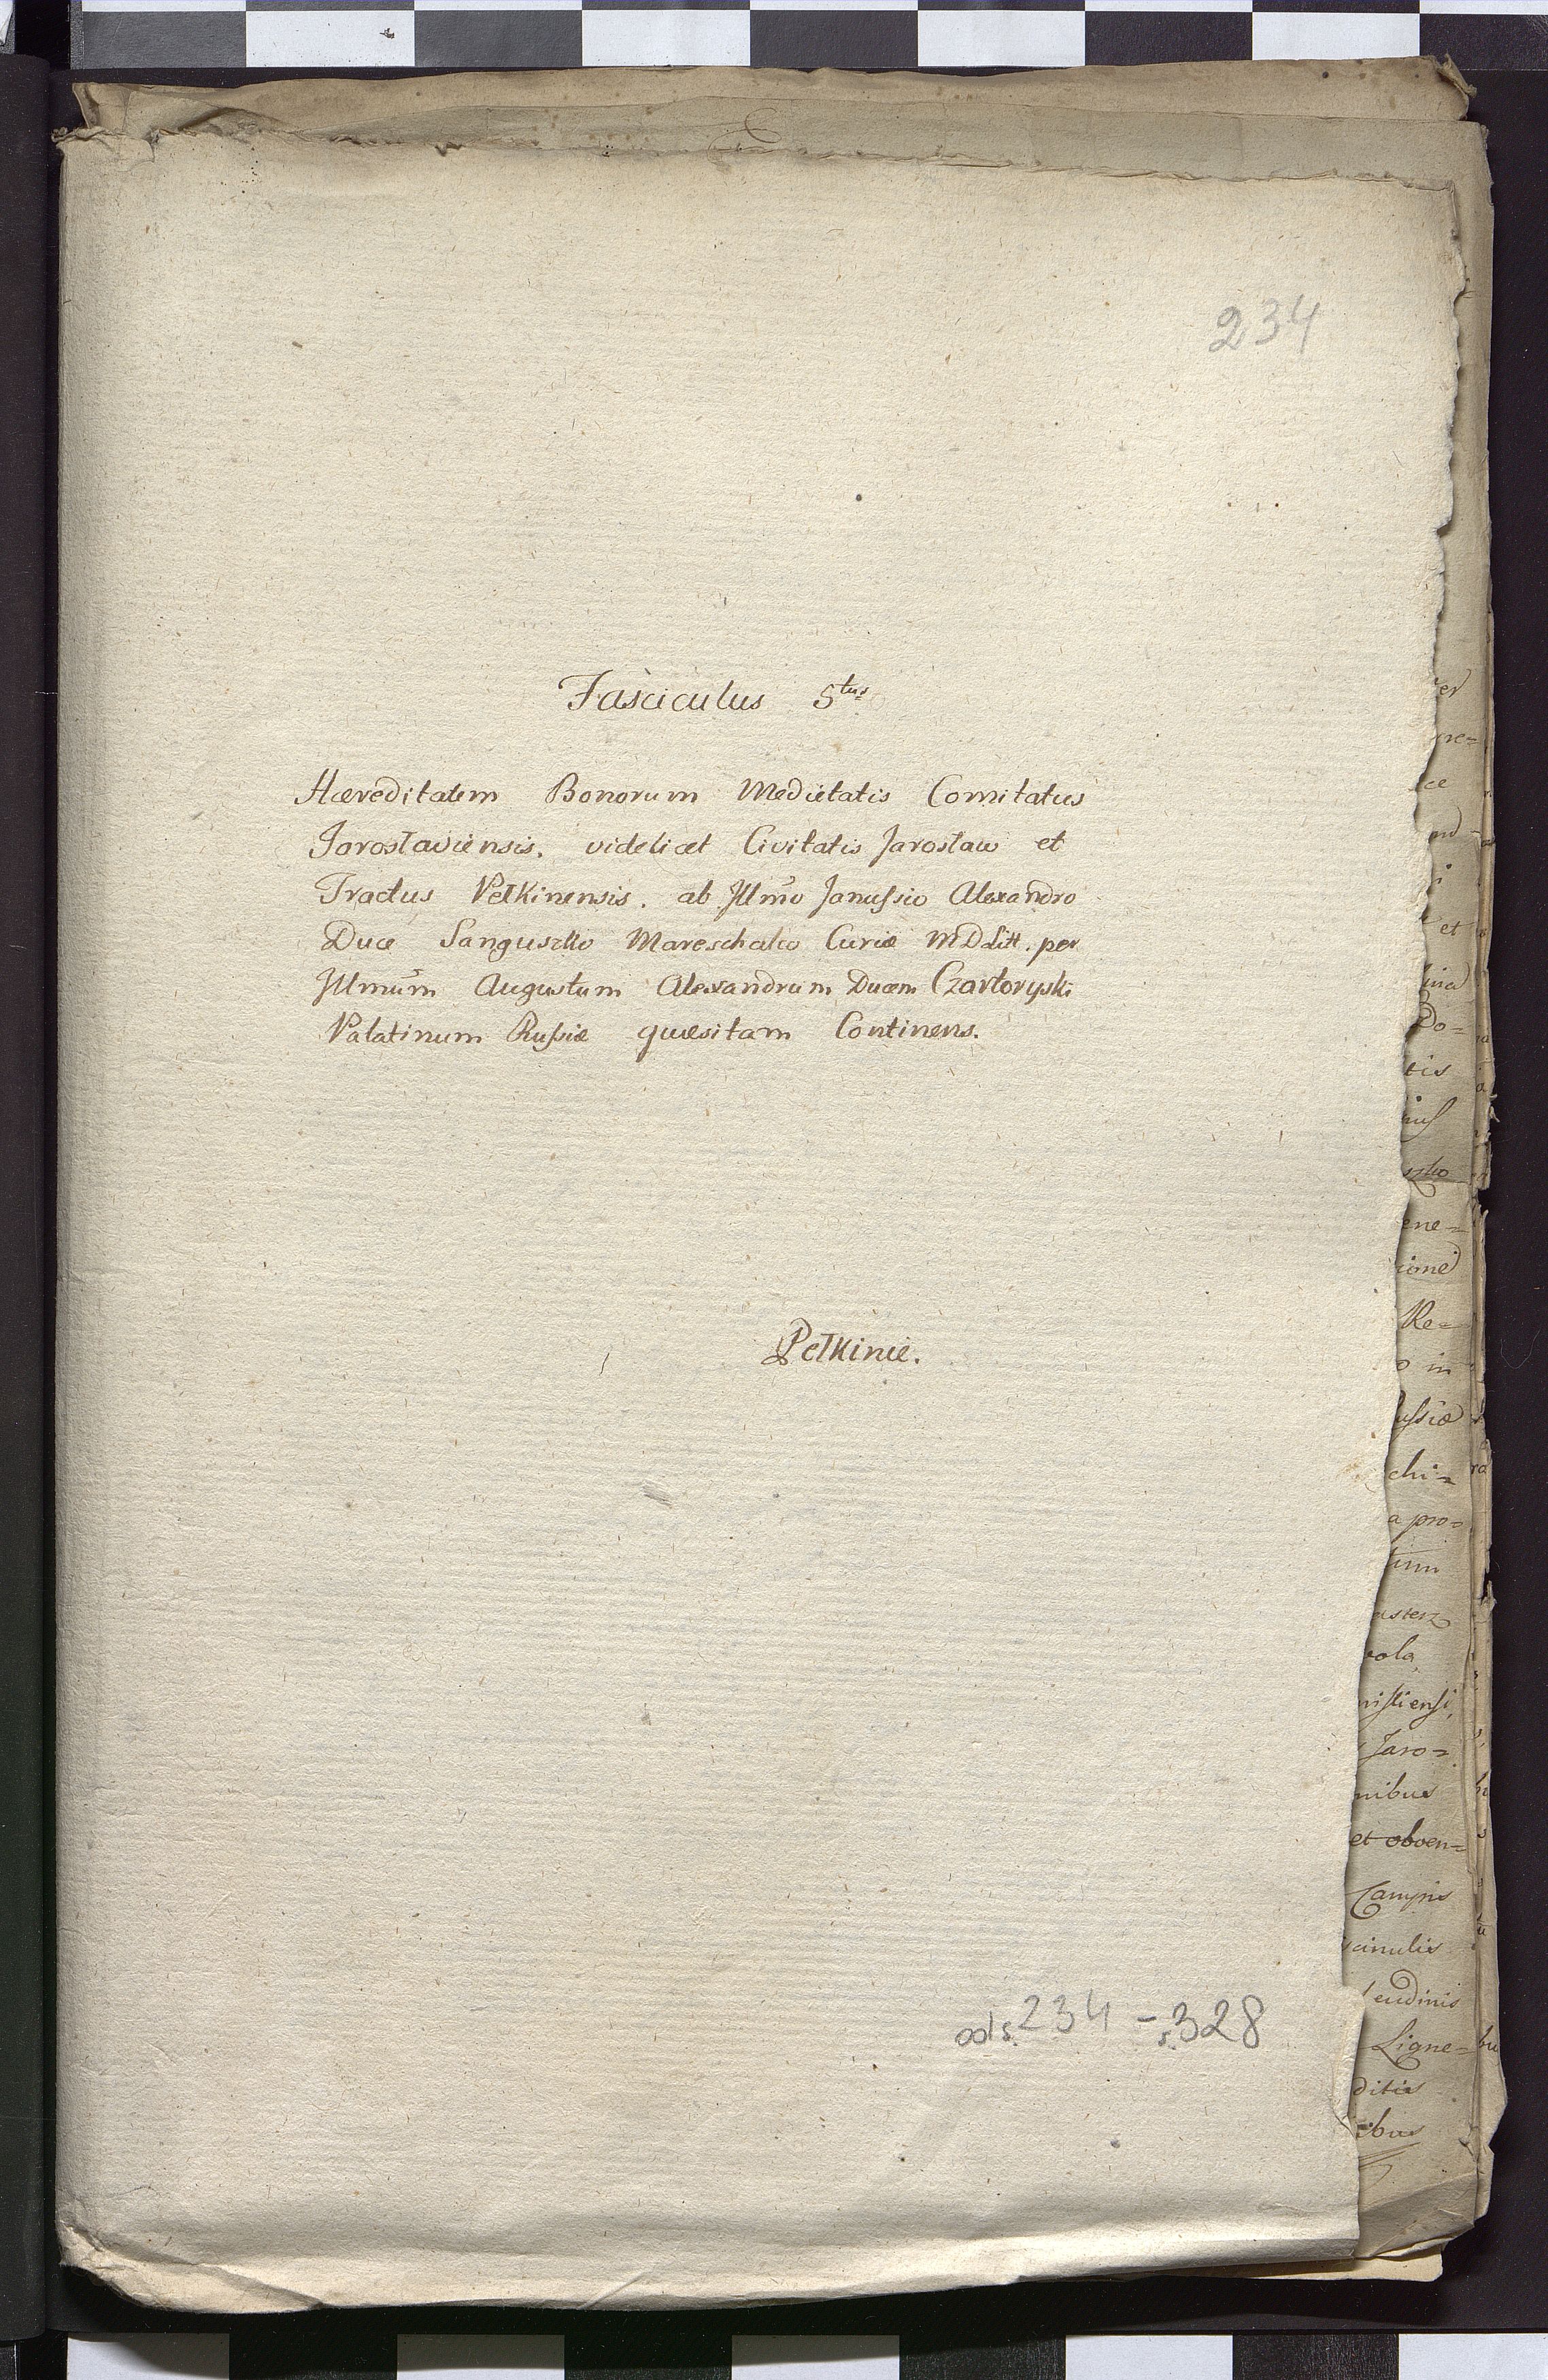 234
Fasciculus 5tus
Hæreditatem Bonorum Medietatis Comitatus
Jarosłaviensis, videlicet Civitatis Jarosław et
Tractus Pełkinensis. ab Illmo Janussio Alexandro
Duce Sanguszko Mareschalco Curiæ MDLitt. per
Illmum Augustum Alexandrum Ducem Czartoryski
Palatinum Russiæ quæsitam Continens.
Pełkinie.
od s. 234 - s. 328
et
Do=
tis
ene=
Re=
in
chi=
a pro=
Jaro=
nibus
et obven=
Campis
Ligne=